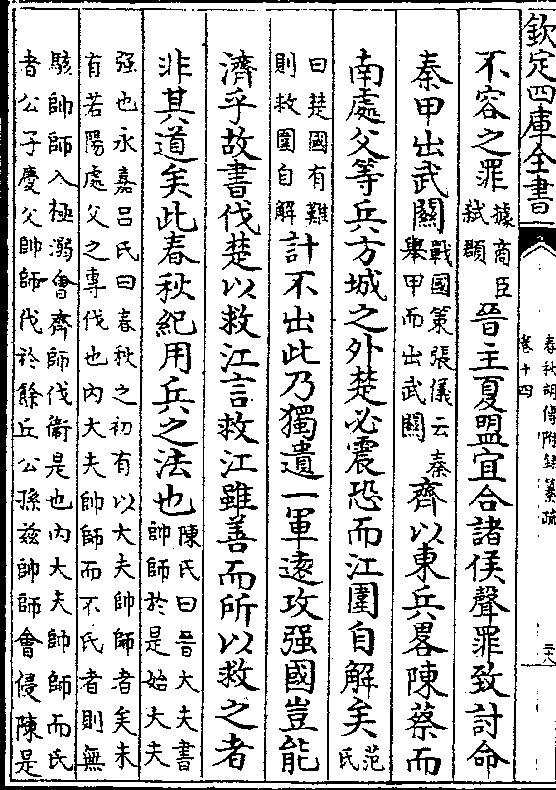 欽定四庫全書
春秋胡傳附錄纂疏
卷十四
不容之罪據商臣
弑頵晉主夏盟宜合諸侯聲罪致討命
秦甲出武關戰國策張儀云秦
舉甲而出武關齊以東兵畧陳蔡而
南處父等兵方城之外楚必震恐而江圍自解矣范
氏
曰楚國有難
則救圍自解計不出此乃獨遣一軍遠攻强國豈能
濟乎故書伐楚以救江言救江雖善而所以救之者
非其道矣此春秋紀用兵之法也陳氏曰晉大夫書
帥師於是始大夫
强也永嘉吕氏曰春秋之初有以大夫帥師者矣未
有若陽處父之專伐也内大夫帥師而不氏者則無
駭帥師入極溺會齊師伐衞是也内大夫帥師而氏
者公子慶父帥師伐於餘丘公孫兹帥師會侵陳是